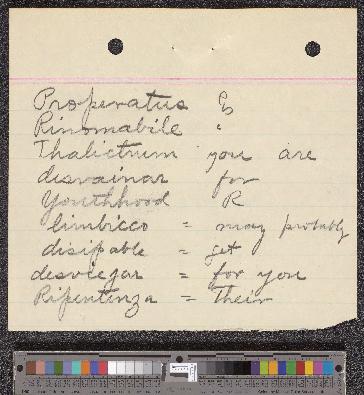 Properatus
Rinomabile "
Thalictrum you are
disvainar for
Youthhood R
limbicco = may probably
disipable = get
desviegar = for you
Ripentinza = their